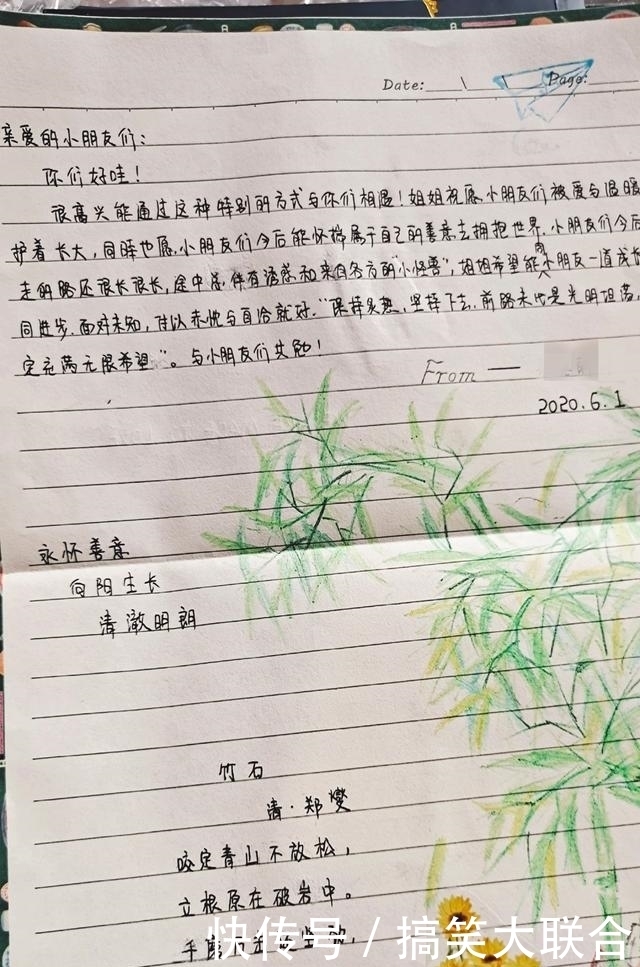 Date: \ \ Page:
亲爱的小朋友们：
你们好哇！
很高兴能通过这种特别的方式与你们相遇！姐姐祝愿小朋友们被爱与温暖
护着长大，同时也愿小朋友们今后能怀揣属于自己的善意去拥抱世界。小朋友们今后
走的路还很长很长，途中总伴有诱惑和来自各方的“小怪兽”，姐姐希望能同小朋友一道成长
同进步。面对未知，付以赤忱与自洽就好。“保持炙热，坚持下去，前路未必是光明坦荡，
定充满无限希望”。与小朋友们共勉！
From —
2020.6.1
永怀善意
向阳生长
清澈明朗
竹石
清·郑燮
咬定青山不放松，
立根原在破岩中。
千磨万击还坚劲，
快传号 / 搞笑大联合